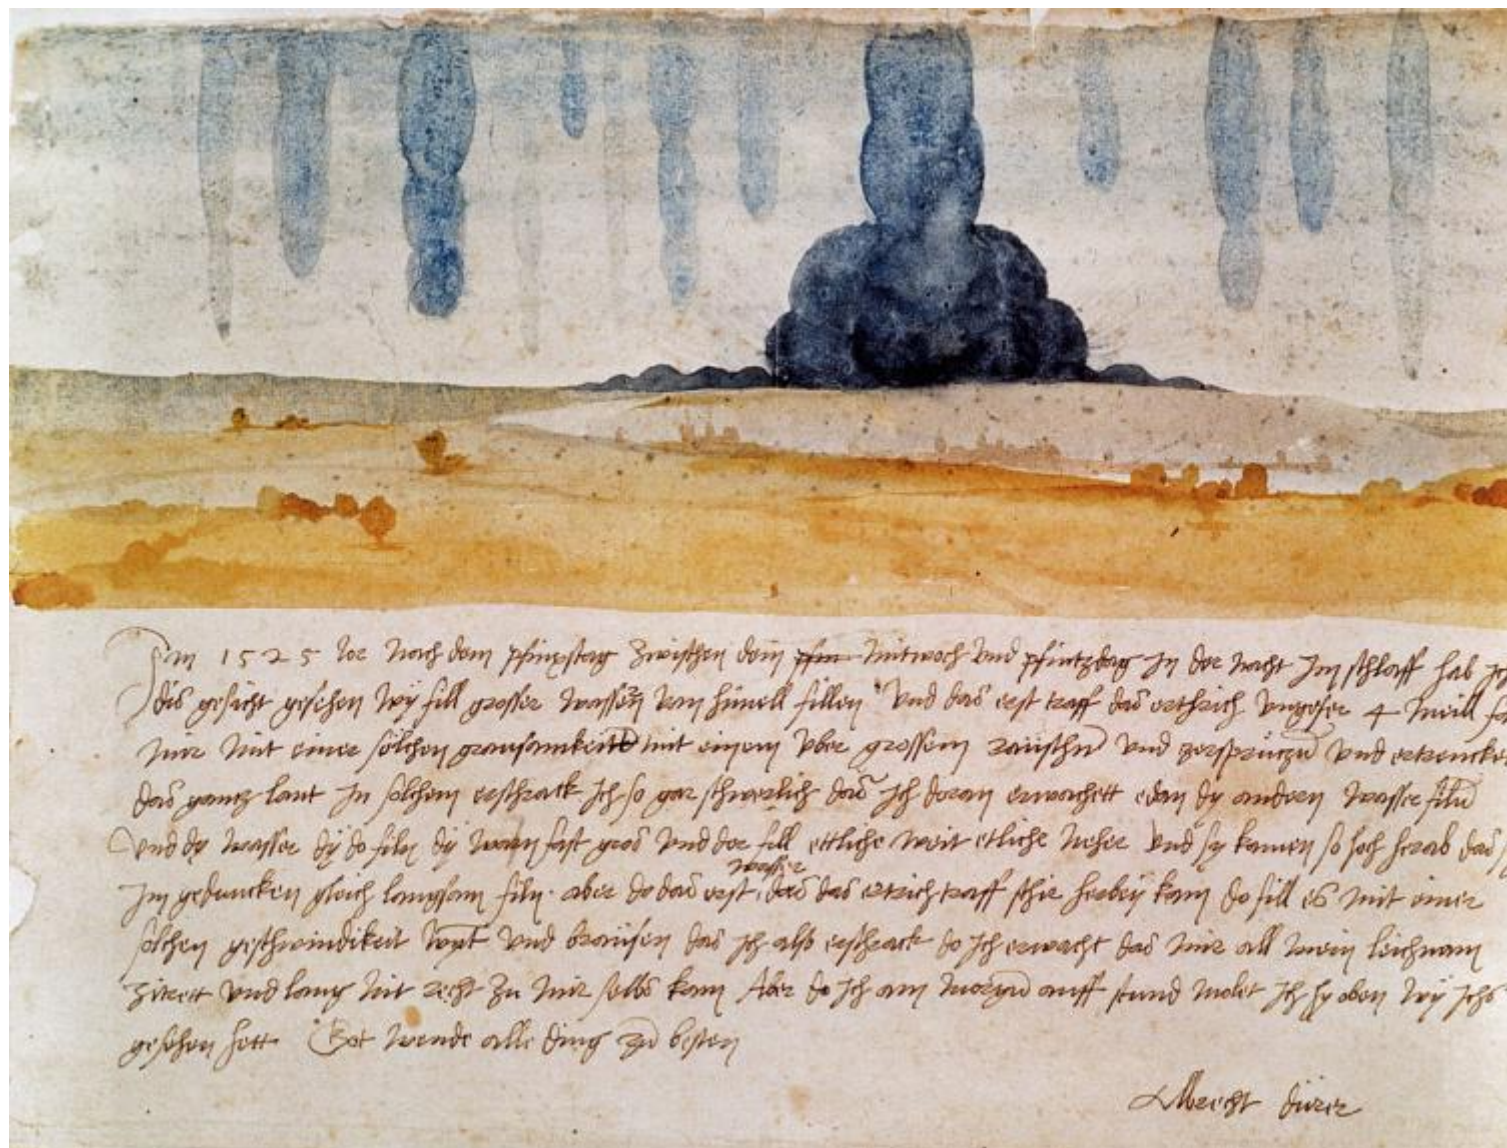 Im 1525 Jor nach dem pfinxstag zwischen dem pfin mitwoch und pfintzdag in der nacht im schlaff hab ich
dis gesicht gesehen wy fill grosser wassern vom himell fillen Und das erst traff das erthrich ungefer 4 meill fa
mir mit einer solchen grausamkeitt mit einem uber grossem raüschn und zersprützn und ertrenckett
das gantz lant In solchem erschrack ich so gar schwerlich das ich doran erwachett edan dy andern wasser filn
Und dy wasser dy do filn dy warn fast gros und der fill ettliche weit etliche neher und sy kamen so hoch herab das s
im gedancken gleich langsam filn. aber do das erst wasser das das ertrich traff schir herbey kam do fill es mit einer
solchen geschwindikeit wynt und braüsen das ich also erschrack do ich erwacht das mir all mein leichnam
zitrett und lang nit recht zu mir selbs kam Aber do ich am morgn auff stund molet ich hy oben wy ichs
gesehen hett Got wende alle ding zu besten
Albrecht dürer